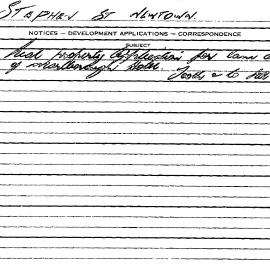 STEPHEN ST NEWTOWN.
NOTICES — DEVELOPMENT APPLICATIONS — CORRESPONDENCE
SUBJECT
Real Property Application for land
of Marlborough Hotel. Tooth & Co